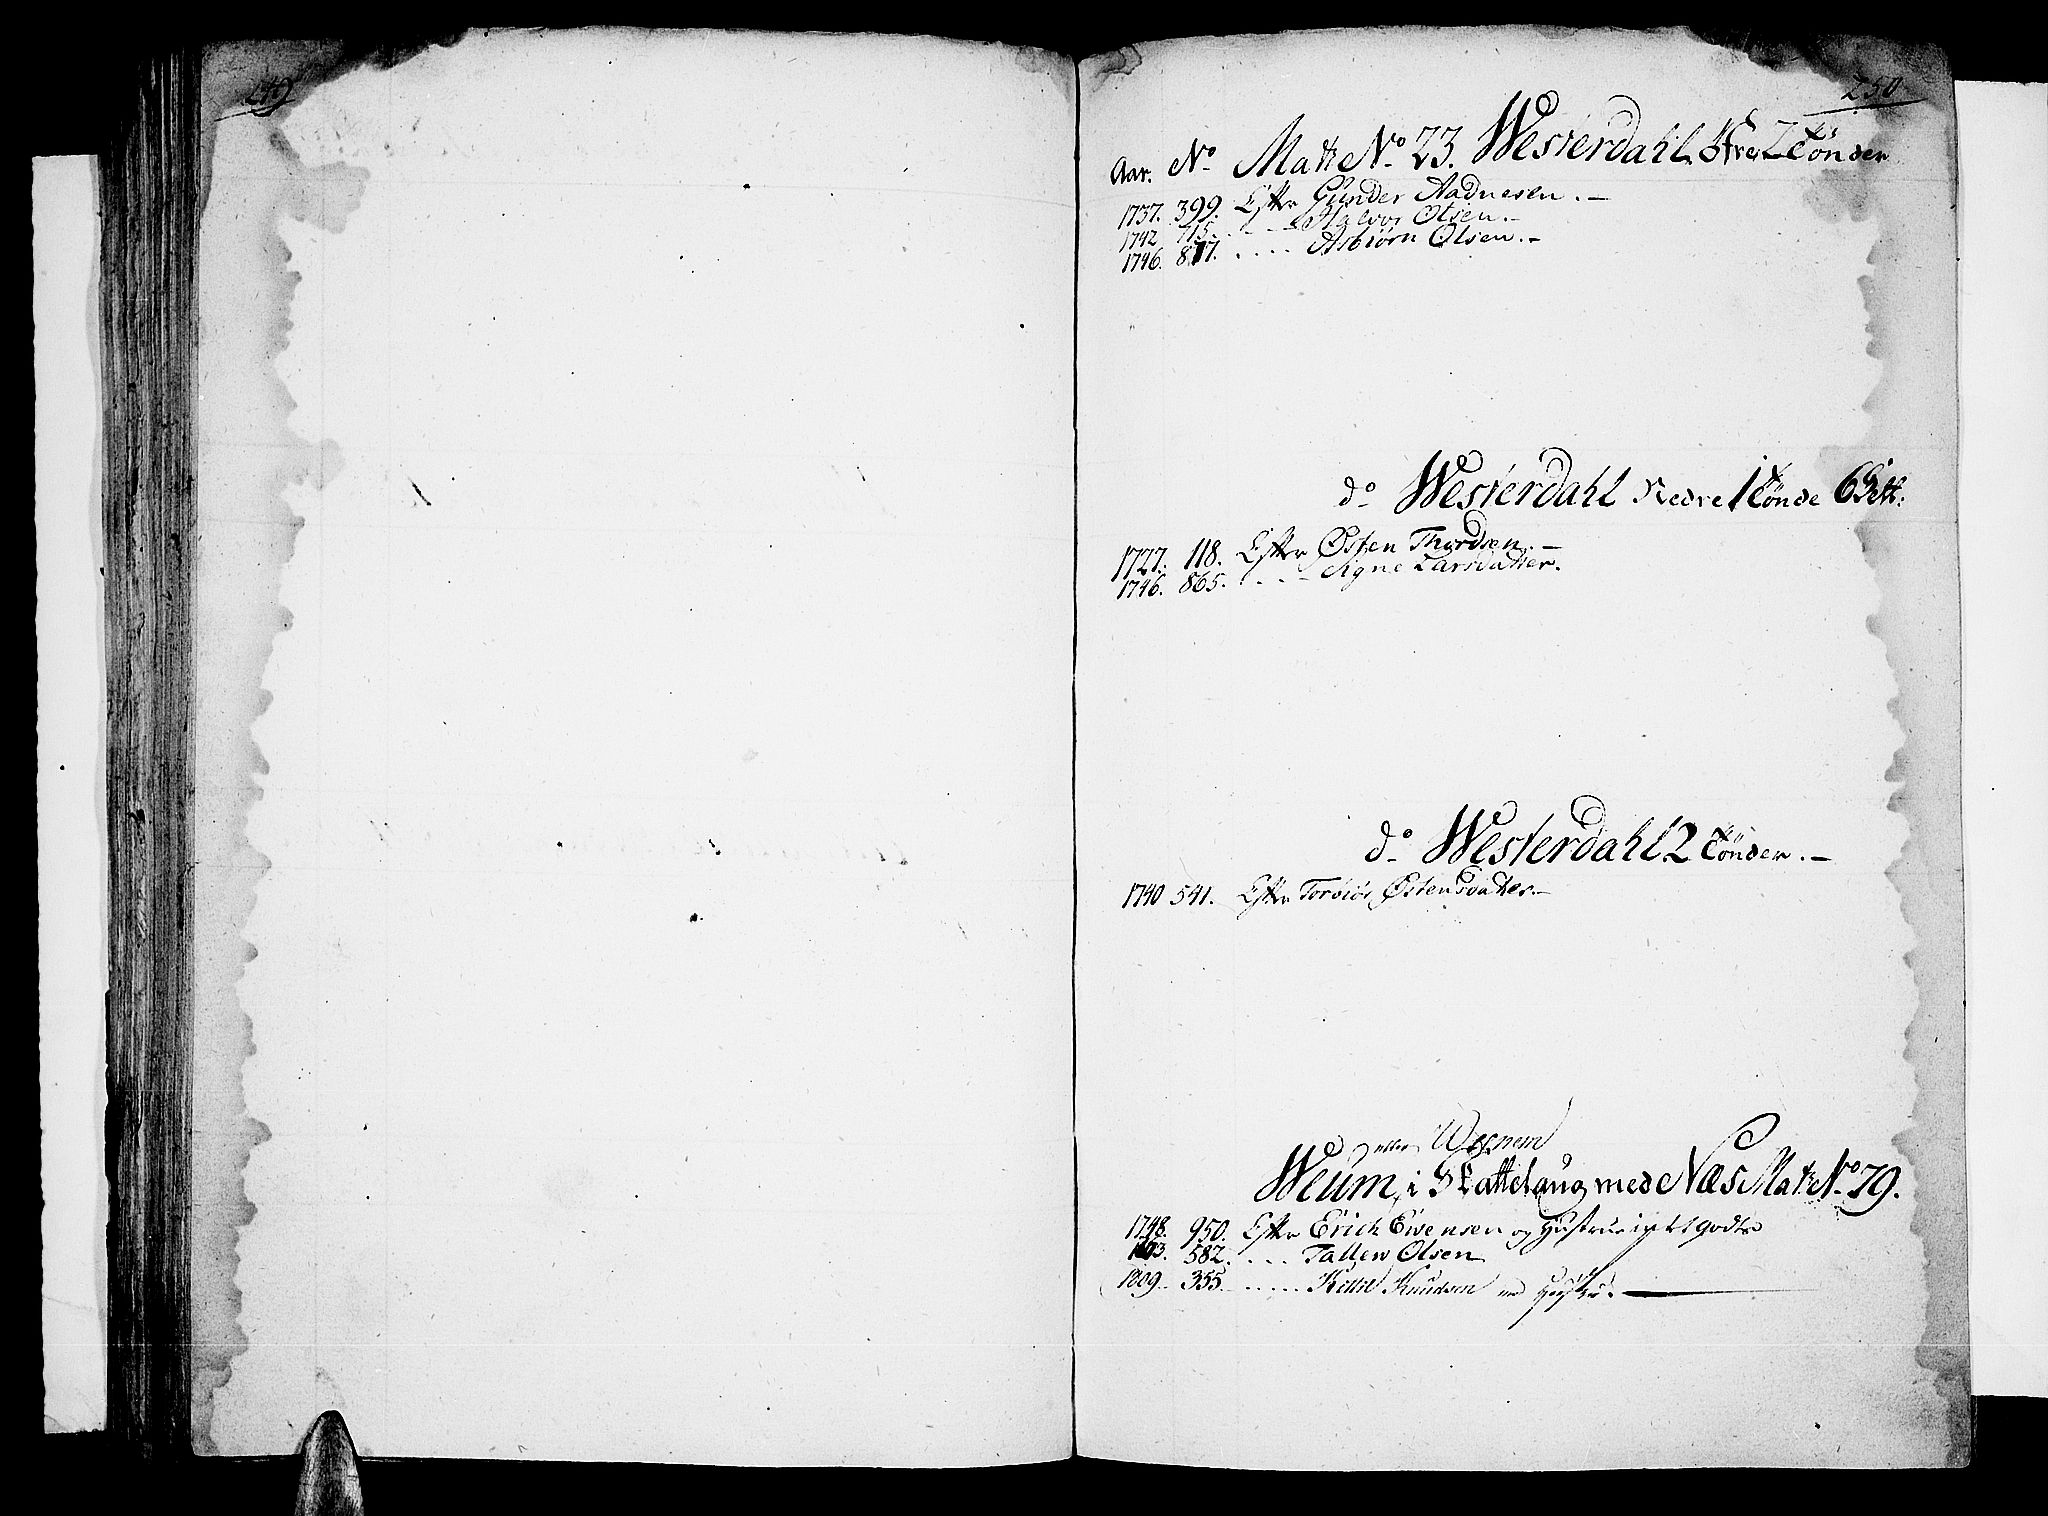 249
250
Aar. No Matr No 23. Westerdahl Øfre 2 Tönder
1737. 399. Efter Gunder Aadnesen. –
1742 715. . . . Halvor Olsen. –
1746. 877. . . . . Asbiørn Olsen. –
do Westerdahl Nedre 1 Tönde 6 Sett:
1727. 118. Efter Østen Thordsen. –
1746. 865. . . . – Signe Larsdatter.
do Westerdahl 2 Tönder. –
1740 541. Efter Østensdatter. –
eller
Weum, i Skattelaug med Næs Matr No 79.
1748. 950. Efter Erich Ewensen og Hustrue
582. . . . Tallew Olsen
1809. 355. . . . . . Kittil Knudsen